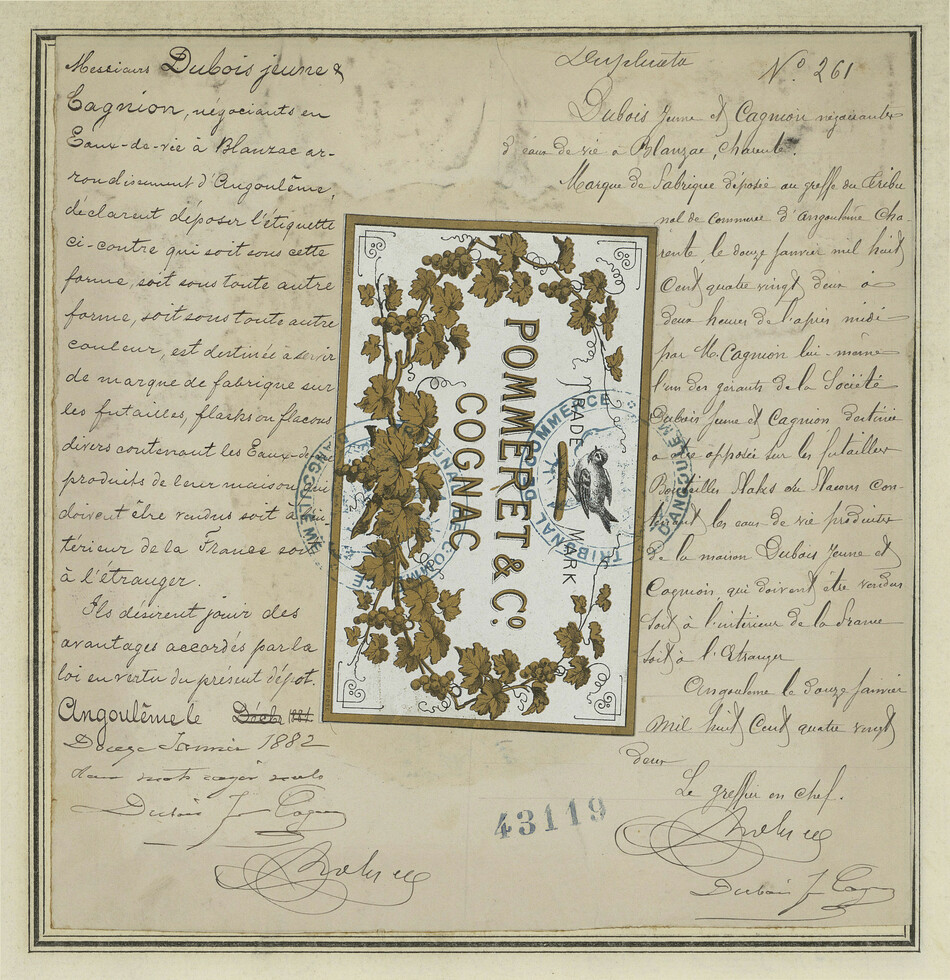 Messieurs Dubois jeune &
Cagnion, négociants en
Eaux-de-vie à Blanzac ar-
rondissement d'Angoulême,
déclarent déposer l'étiquette
ci-contre qui soit sous cette
forme, soit sous toute autre
forme, soit sous toute autre
couleur, est destinée à servir
de marque de fabrique sur
les futailles, flasks ou flacons
divers contenant les Eaux-de-
produits de leur maison qui
doivent être vendus soit à l'in-
térieur de la France soit
à l'étranger.
Ils désirent jouir des
avantages accordés par la
loi en vertu du présent dépot.
Angoulême le
Douze Janvier 1882
Dubois Jne Cagnion
Duplicata
No. 261
Dubois Jeune et Cagnion négociants
d'eaux de vie à Blanzac, Charente.
Marque de fabrique déposée au greffe du tribu
nal de commerce d'Angoulême Cha-
rente le douze Janvier mil huit
Cent quatre vingt deux à
deux heures de l'après midi
par M. Cagnion lui-même
l'un des gérants de la Société
Dubois Jeune et Cagnion destinée
à être apposée sur les futailles
Bouteilles flasks ou flacons con-
tenant les eaux de vie produites
de la maison Dubois Jeune et
Cagnion qui doivent être vendus
soit à l'intérieur de la France
soit à l'Etranger
Angoulême le Douze Janvier
Mil huit Cent quatre vingt
deux
Le greffier en chef.
Dubois Jne Cagnion
POMMERET & Co.
COGNAC
TRADE MARK
TRIBUNAL DE COMMERCE
ANGOULÊME
43119